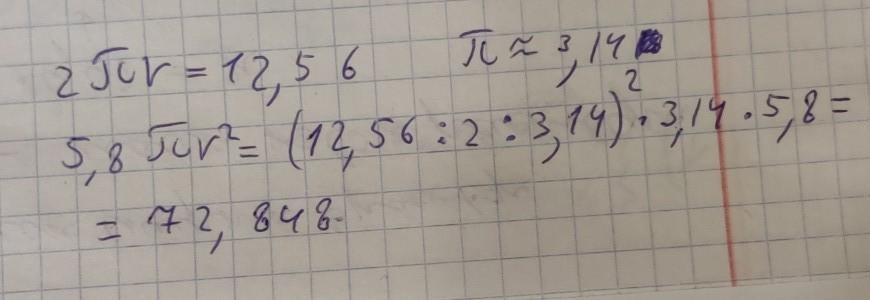 2πr = 12,56 π ≈ 3,14
5,8 πr² = (12,56 : 2 : 3,14)² · 3,14 · 5,8 =
= 72,848.